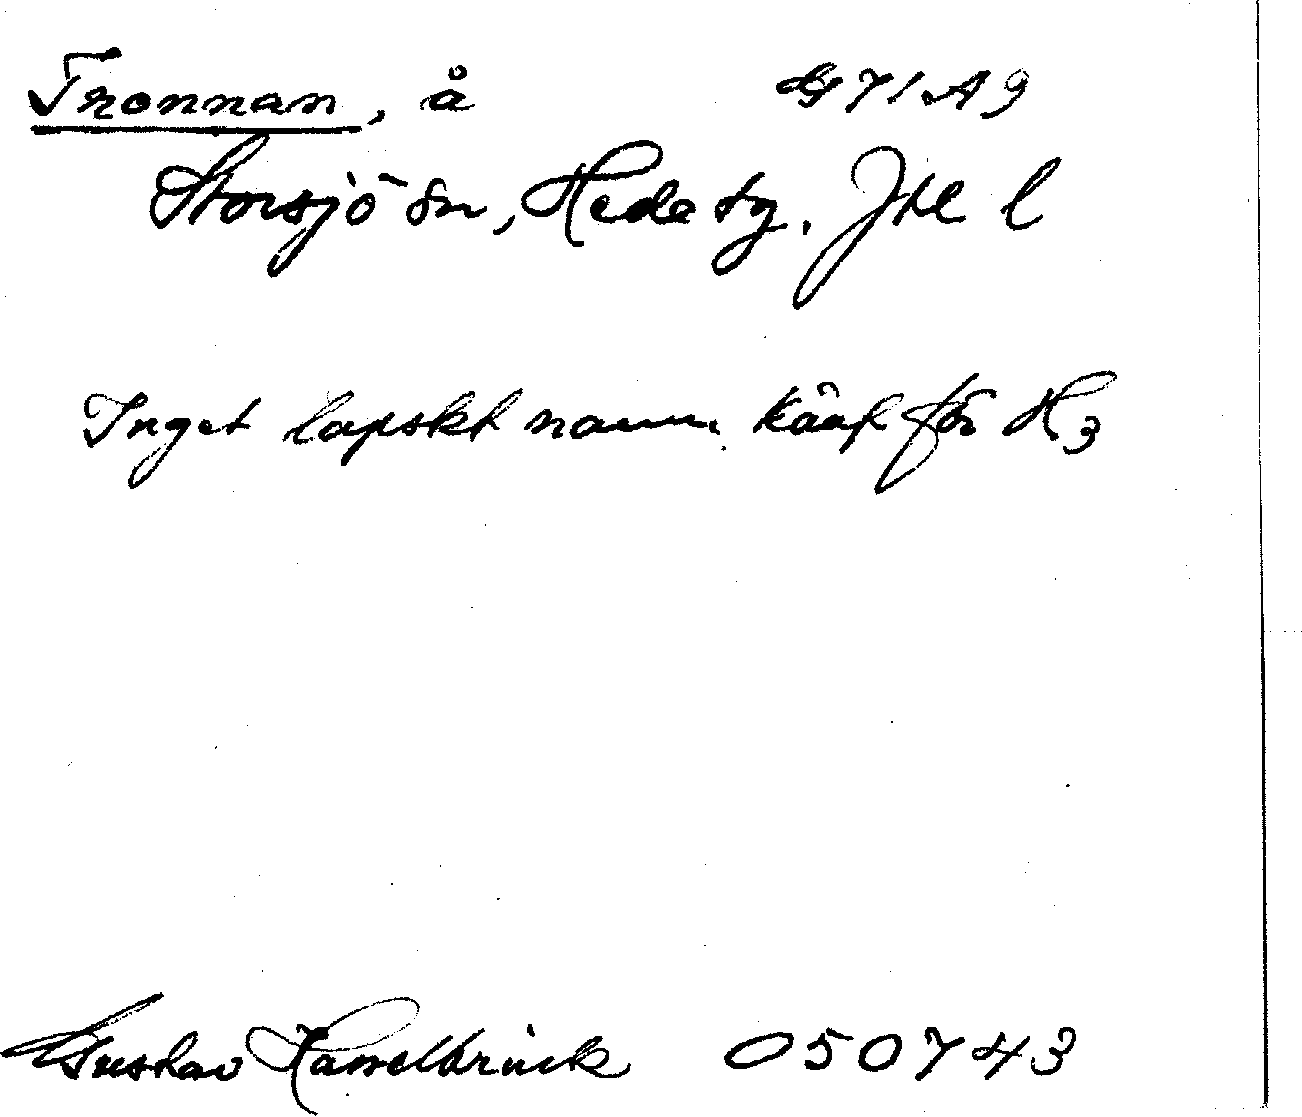 Tronnan, å G71A9
Storsjö sn, Hede tg. Jtl l
Inget lapskt namn känt för H3
Gustav Hasselbrink 050743